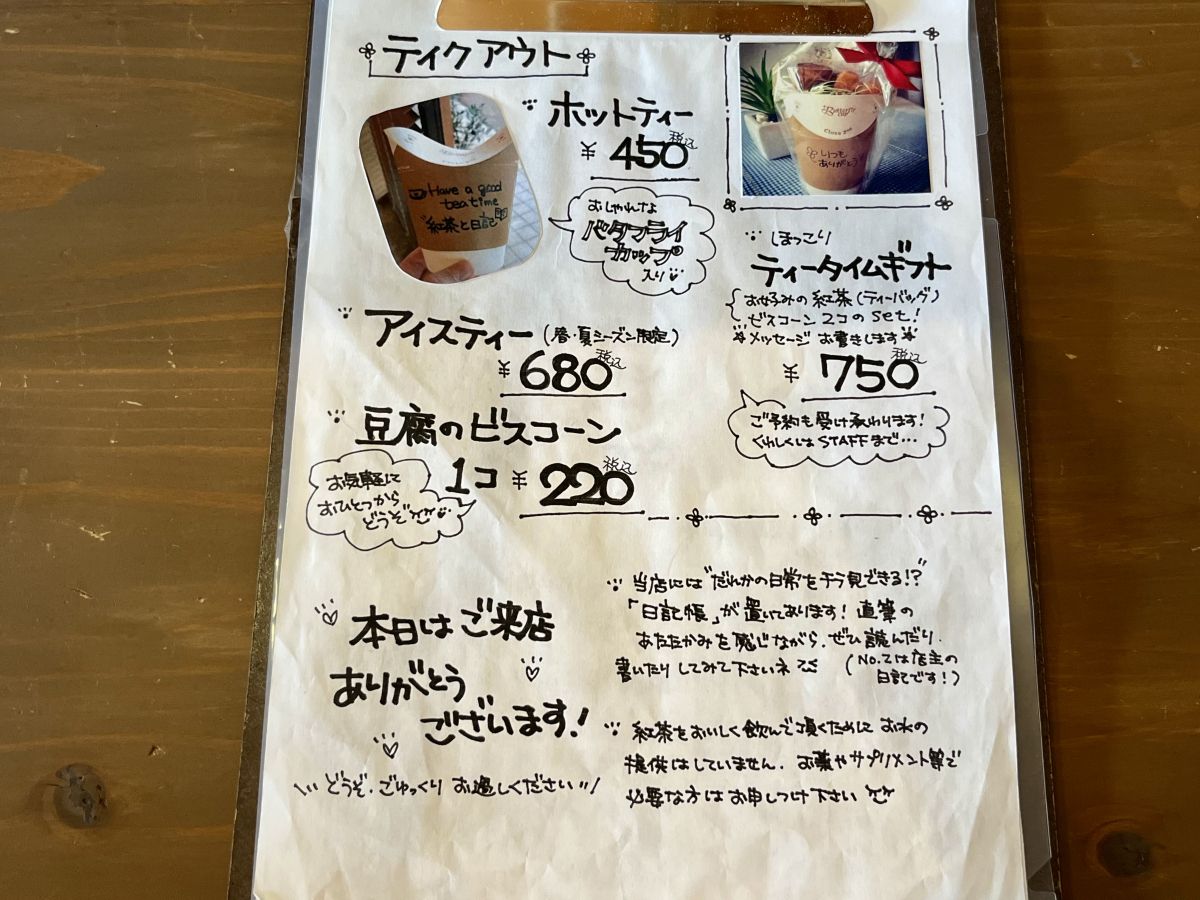 ティクアウト
ホットティー
¥450税込
おしゃれな
バタフライ
カップ
入り
Have a good
tea time
紅茶と日記
アイスティー(春・夏シーズン限定)
¥680税込
豆腐のビスコーン
1コ ¥220税込
お気軽に
おひとつから
どうぞ
いつも
ありがとう
ほっこり
ティータイムギフト
お好みの紅茶(ティーバッグ)
ビスコーン2コのset!
メッセージお書きします
¥750税込
ご予約も受け承わります!
くわしくはSTAFFまで…
本日はご来店
ありがとう
ございます!
どうぞ、ごゆっくりお過しください
当店には"だれかの日常をチラ見できる!?"
「日記帳」が置いてあります!直筆の
あたたかみを感じながら、ぜひ読んだり、
書いたりしてみて下さいネ
(No.2は店主の
日記です!)
紅茶をおいしく飲んで頂くためにお水の
提供はしていません。お薬やサプリメント等で
必要な方はお申しつけ下さい